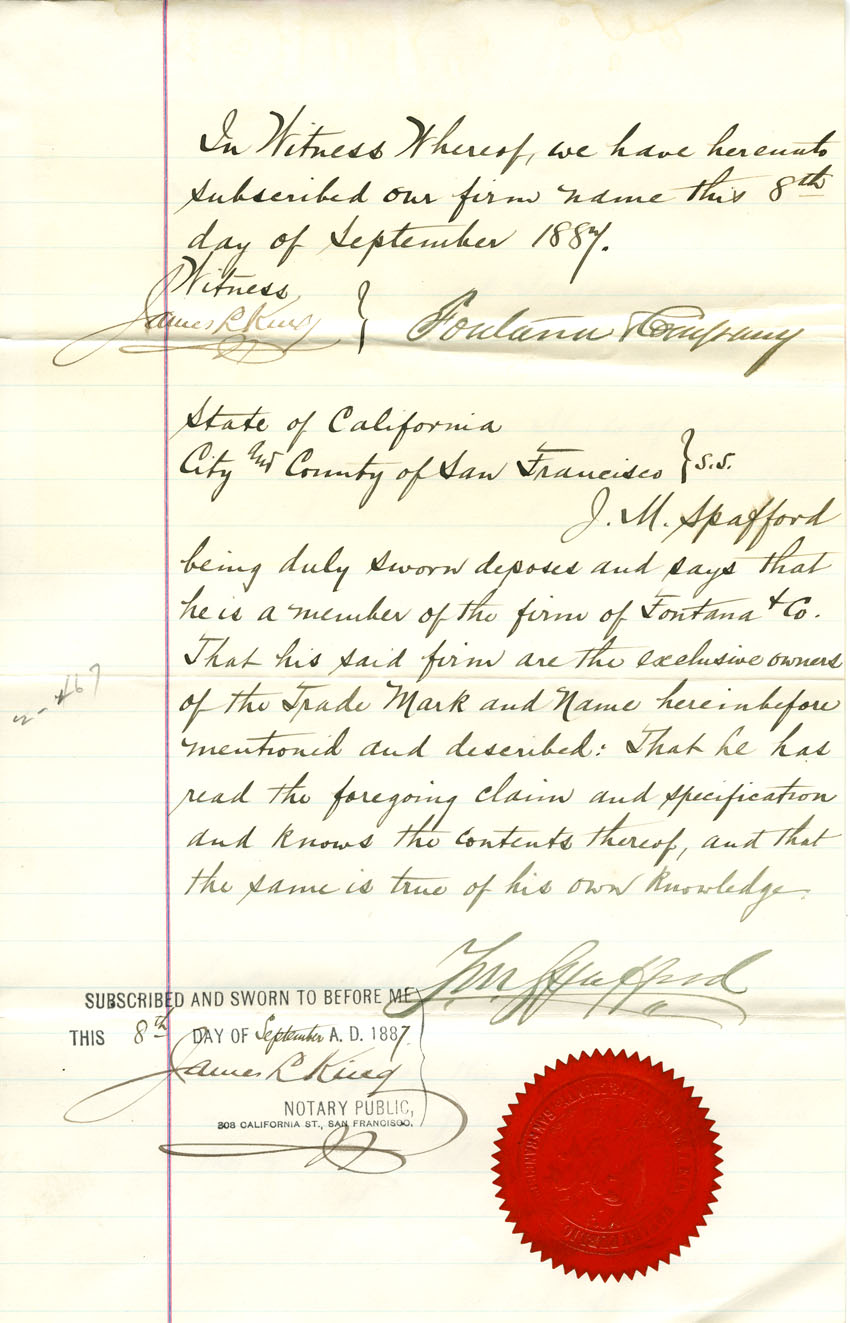 In Witness Whereof, we have hereunto
subscribed our firm name this 8th
day of September 1887.
Witness
James L King } Fontana & Company
State of California
City and County of San Francisco } S.S.
J. M. Spafford
being duly sworn deposes and says that
he is a member of the firm of Fontana & Co.
That his said firm are the exclusive owners
of the Trade Mark and Name hereinbefore
mentioned and described: That he has
read the foregoing claim and specification
and knows the contents thereof, and that
the same is true of his own knowledge.
J M Spafford
SUBSCRIBED AND SWORN TO BEFORE ME
THIS 8th DAY OF September A. D. 1887.
James L King
NOTARY PUBLIC,
308 CALIFORNIA ST., SAN FRANCISCO.